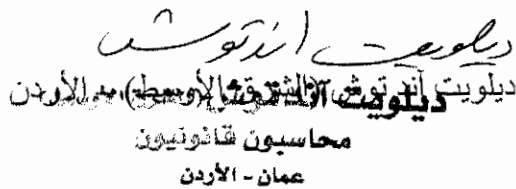 ديلويت اند توش
ديلويت آند توش (الشرق الأوسط) – الأردن
محاسبون قانونيون
عمان - الأردن